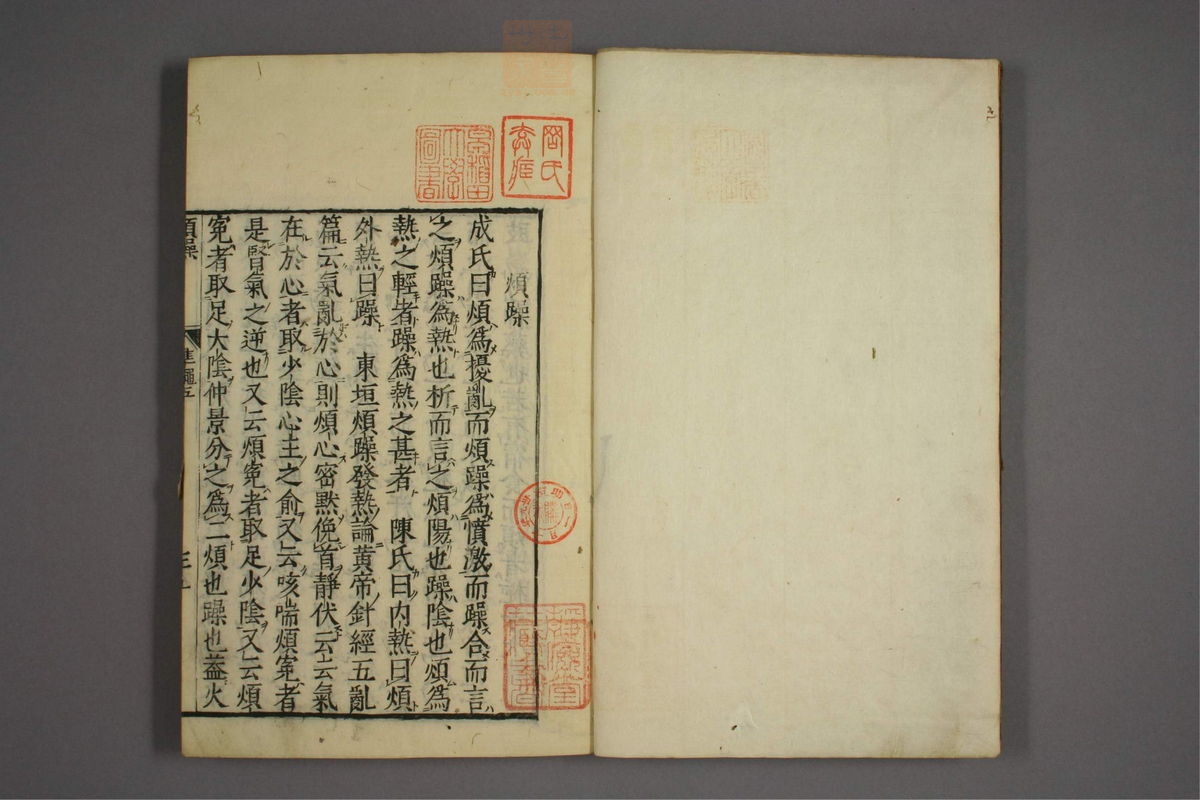 煩躁
成氏曰煩爲擾亂而煩躁爲憤激而躁合而言
之煩躁爲熱也析而言之煩陽也躁陰也煩爲
熱之輕者躁爲熱之甚者 陳氏曰内熱曰煩
外熱曰躁 東垣煩躁發熱論黄帝針經五亂
篇云氣亂於心則煩心密黙俛首靜伏云云氣
在於心者取少陰心主之俞又云咳喘煩寃者
是腎氣之逆也又云煩寃者取足少陰又云煩
寃者取足太陰仲景分之爲二煩也躁也蓋火
煩躁
準繩五
早稻田大學圖書